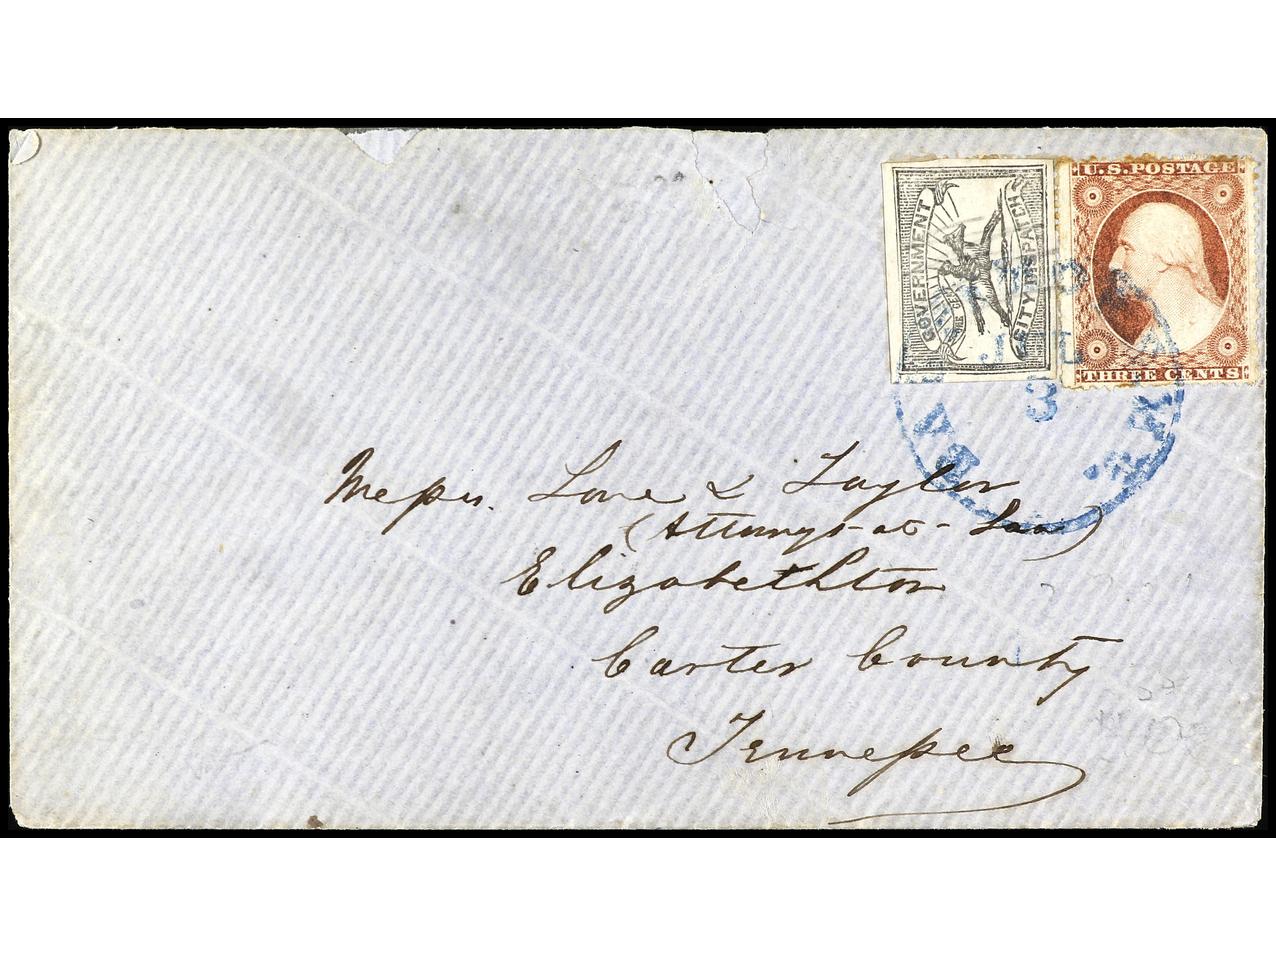 U.S.POSTAGE
GOVERNMENT
CITY DISPATCH
ONE CENT
THREE CENTS
JUL
3
Messrs. Love & Taylor
(Attorneys-at-Law)
Elizabethton
Carter County
Tennessee